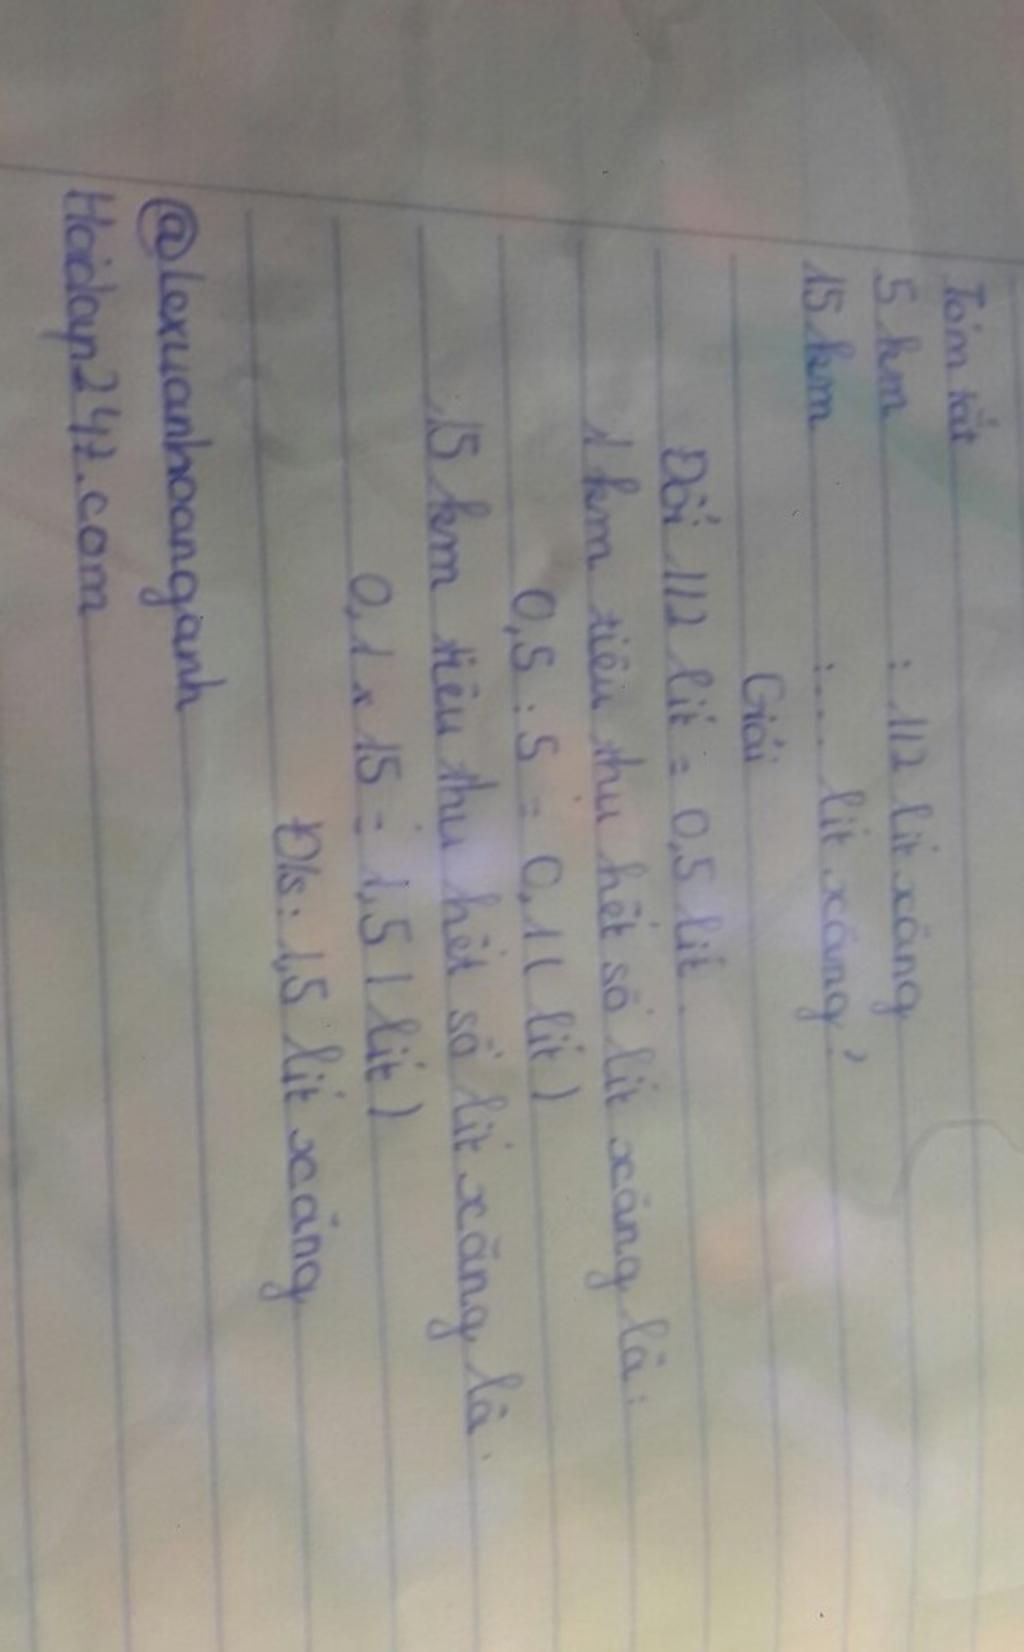 Tóm tắt
5 km : 1/2 lít xăng
15 km : .... lít xăng?
Giải
Đổi 1/2 lít = 0,5 lít.
1 km tiêu thụ hết số lít xăng là:
0,5 : 5 = 0,1 ( lít )
15 km tiêu thụ hết số lít xăng là.
0,1 x 15 = 1,5 ( lít )
Đ/s: 1,5 lít xăng
@lexuanhoanganh
Hoidap247.com